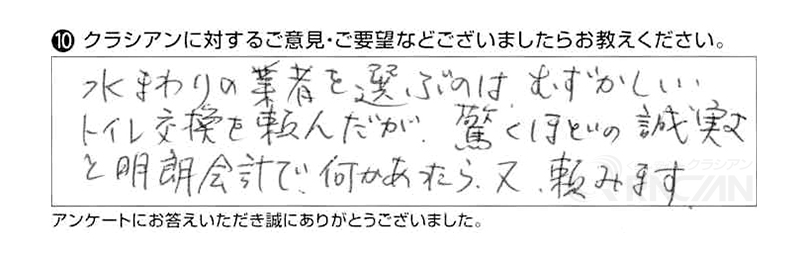 ⑩ クラシアンに対するご意見・ご要望などございましたらお教えください。
水まわりの業者を選ぶのは、むずかしい
トイレ交換を頼んだが、驚くほどの誠実さ
と明朗会計で、何かあったら、又、頼みます
クラシアン
アンケートにお答えいただき誠にありがとうございました。